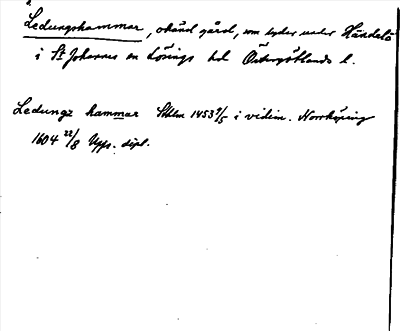 Ledungshammar, okänd gård, som lyder under Händelö
i St Johannes en Lösings hd Östergötlands l.
Ledungz hammar Sthlm 1453 9/5 i vidim. Norrköping
1604 22/8 Upps. dipl.